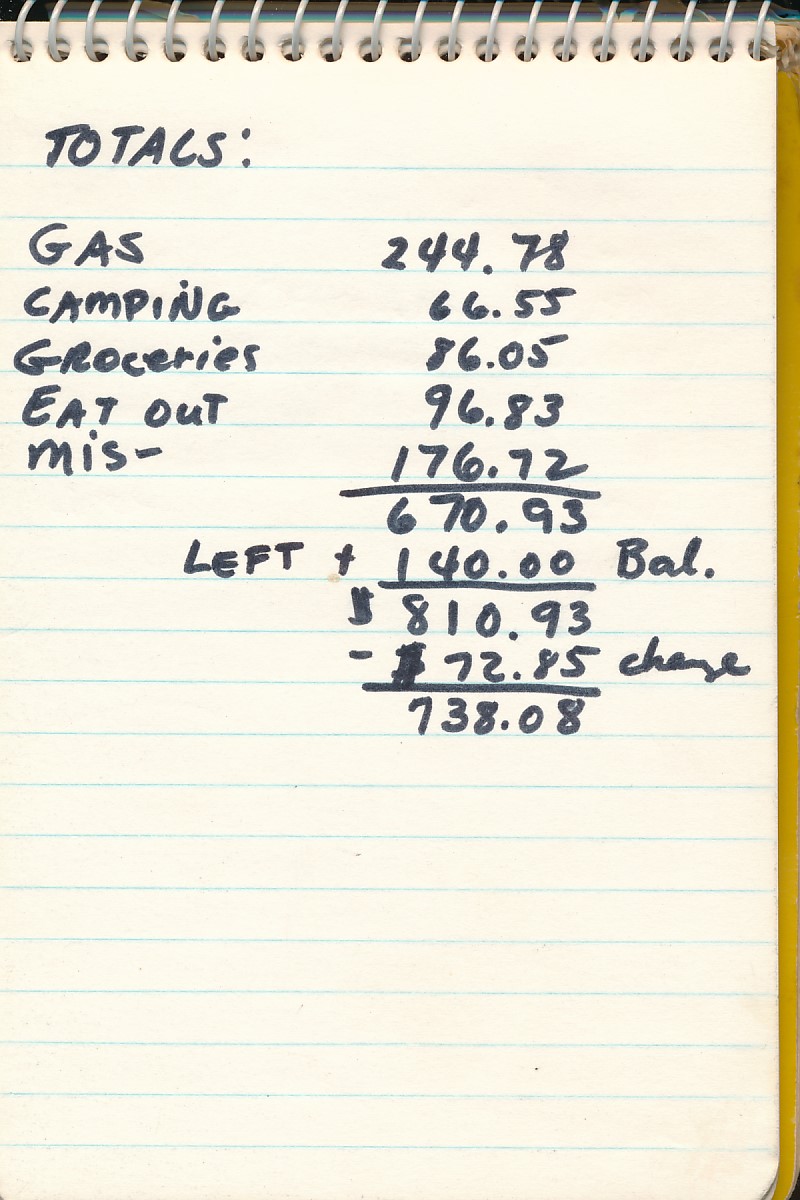 TOTALS:
GAS 244.78
CAMPING 66.55
GROCeries 86.05
EAT OUT 96.83
mis- 176.72
670.93
LEFT + 140.00 Bal.
$ 810.93
- $ 72.85 change
738.08